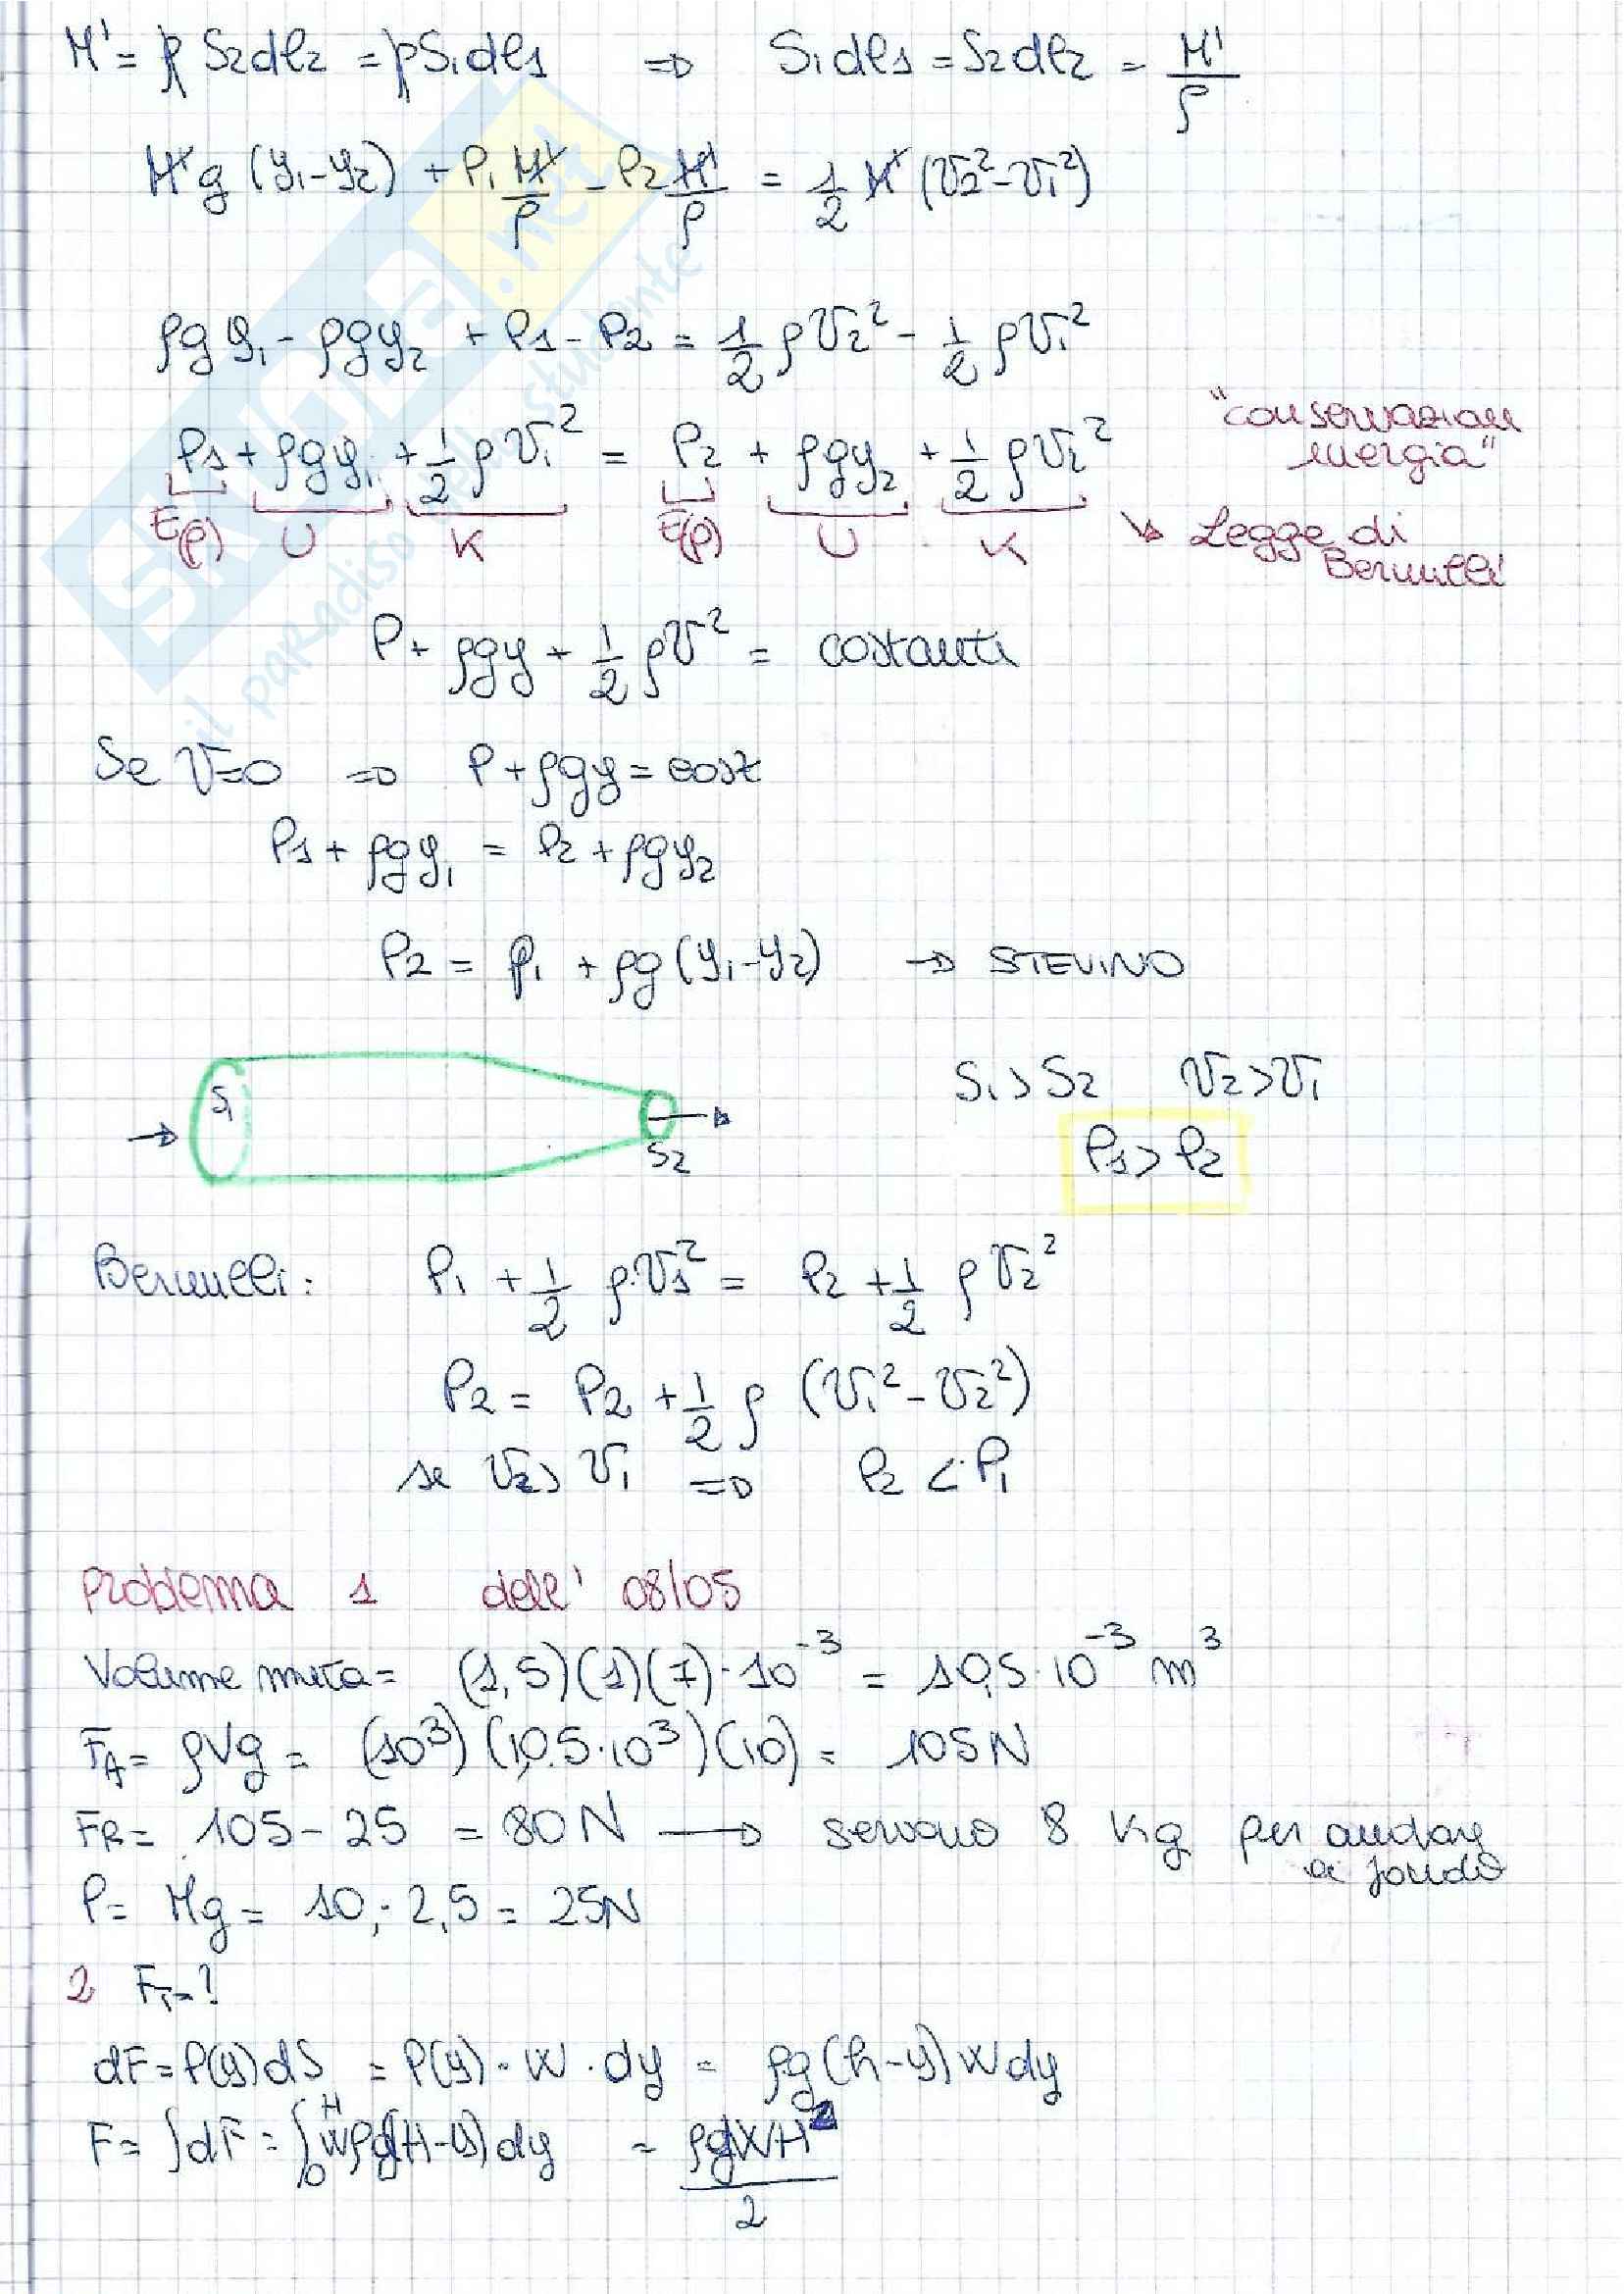 M' = ρ S₂dl₂ = ρS₁dl₁ ⇒ S₁dl₁ = S₂dl₂ = M'/ρ
M'g (y₁-y₂) + P₁ M'/ρ - P₂ M'/ρ = 1/2 M' (v₂²-v₁²)
ρg y₁ - ρgy₂ + P₁ - P₂ = 1/2 ρv₂² - 1/2 ρv₁²
"conservazione
energia"
P₁ + ρgy₁ + 1/2 ρv₁² = P₂ + ρgy₂ + 1/2 ρv₂²
E(p) U K E(p) U K ↘ Legge di
Bernulli
P + ρgy + 1/2 ρv² = costante
Se v=0 ⇒ P + ρgy = cost
P₁ + ρgy₁ = P₂ + ρgy₂
P₂ = P₁ + ρg(y₁-y₂) → STEVINO
S₁ S₂
S₁ > S₂ v₂ > v₁
P₁ > P₂
Bernulli: P₁ + 1/2 ρ·v₁² = P₂ + 1/2 ρ v₂²
P₂ = P₂ + 1/2 ρ (v₁² - v₂²)
se v₂ > v₁ ⇒ P₂ < P₁
Problema 1 dell' 08/05
Volume muta = (1,5)(1)(7)·10⁻³ = 10,5·10⁻³ m³
F_A = ρVg = (10³)(10,5·10³)(10) = 105N
F_R = 105 - 25 = 80N → servono 8 Kg per andare
a fondo
P = Mg = 10 · 2,5 = 25N
2 F_T = ?
dF = P(y)dS = P(y) · W · dy = ρg(h-y)Wdy
F = ∫dF = ∫₀ᴴ Wρg(H-y)dy = ρgWH²/2
SKUOLA.net
il paradiso dello studente